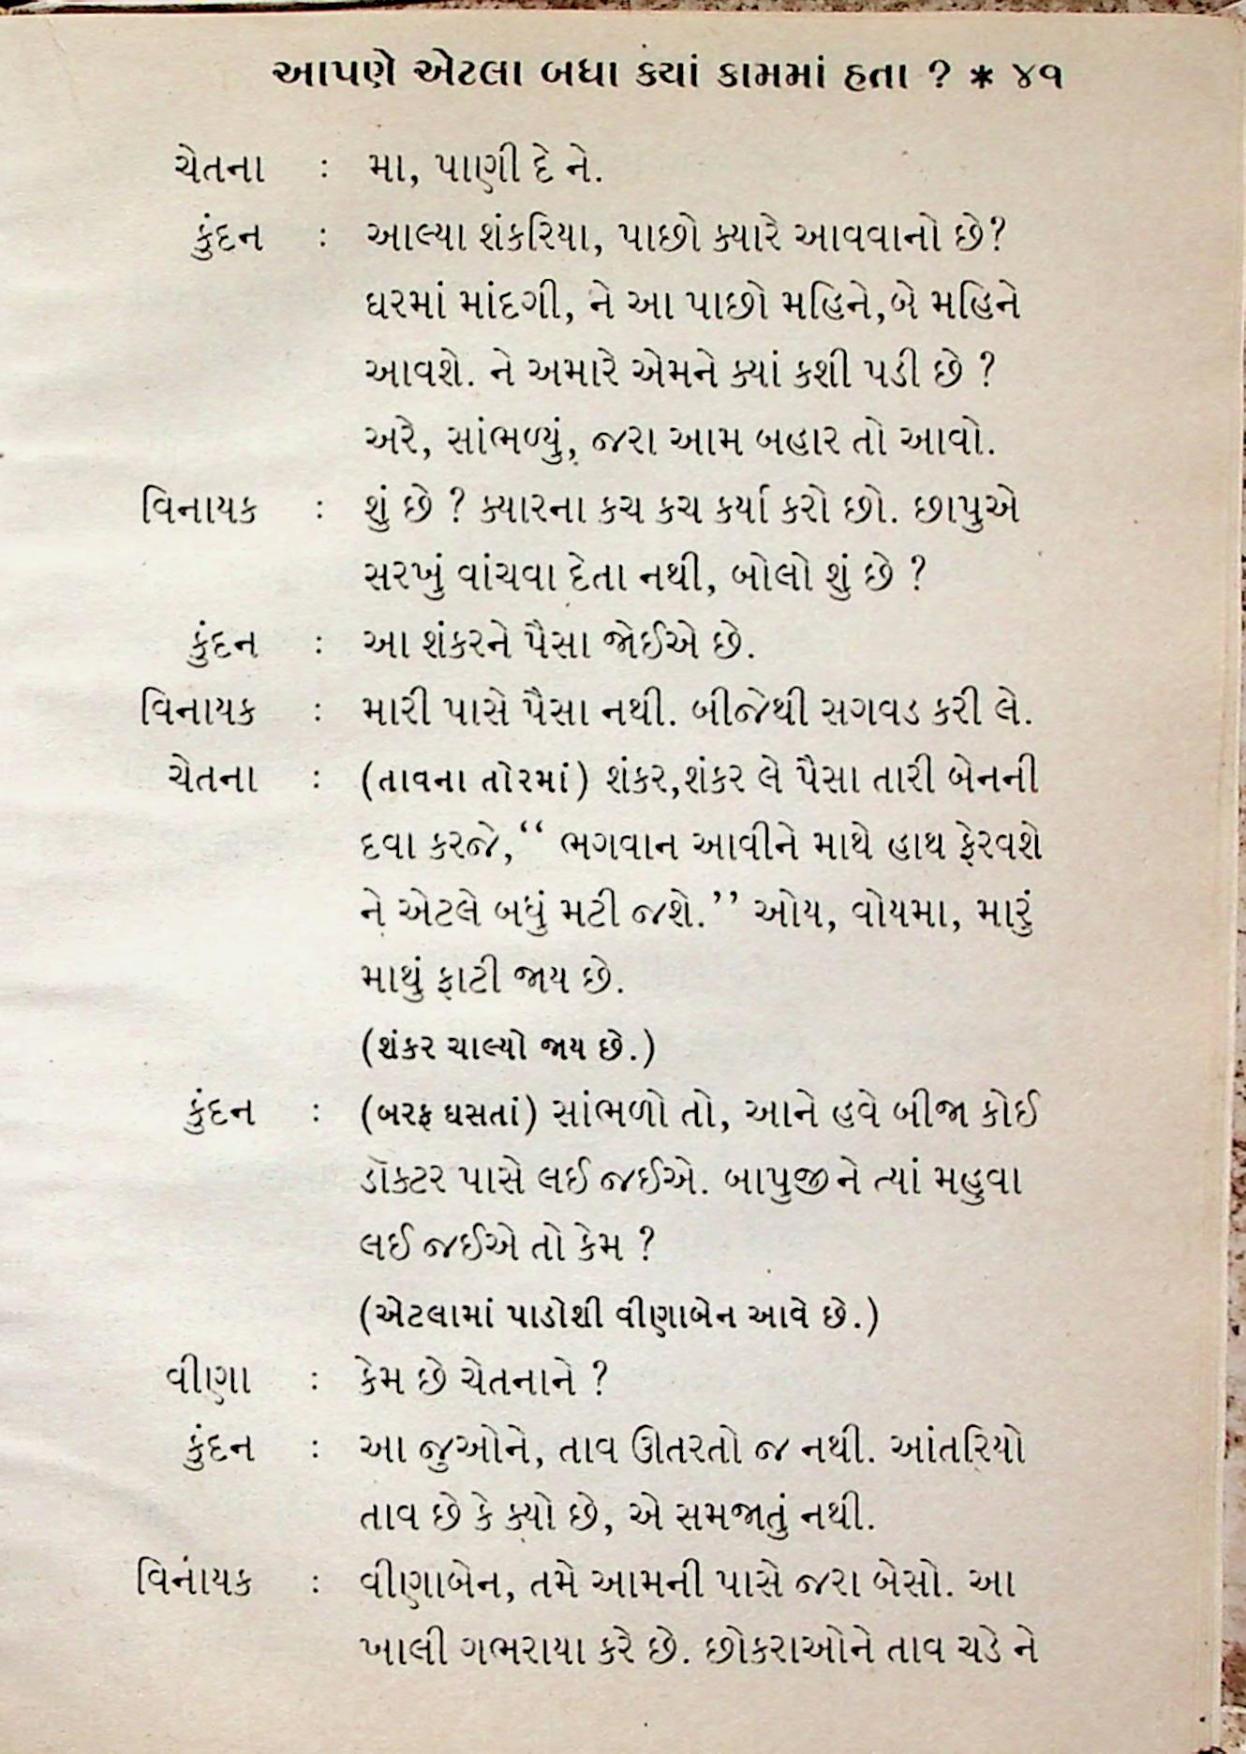 આપણે એટલા બધા ક્યાં કામમાં હતા ? * ૪૧
ચેતના : મા, પાણી દે ને.
કુંદન : આલ્યા શંકરિયા, પાછો ક્યારે આવવાનો છે?
ઘરમાં માંદગી, ને આ પાછો મહિને,બે મહિને
આવશે. ને અમારે એમને ક્યાં કશી પડી છે ?
અરે, સાંભળ્યું, જરા આમ બહાર તો આવો.
વિનાયક : શું છે ? ક્યારના કચ કચ કર્યા કરો છો. છાપુએ
સરખું વાંચવા દેતા નથી, બોલો શું છે ?
કુંદન : આ શંકરને પૈસા જોઈએ છે.
વિનાયક : મારી પાસે પૈસા નથી. બીજેથી સગવડ કરી લે.
ચેતના : (તાવના તોરમાં) શંકર,શંકર લે પૈસા તારી બેનની
દવા કરજે,‘‘ ભગવાન આવીને માથે હાથ ફેરવશે
ને એટલે બધું મટી જશે.’’ ઓય, વોયમા, મારું
માથું ફાટી જાય છે.
(શંકર ચાલ્યો જાય છે.)
કુંદન : (બરફ ઘસતાં) સાંભળો તો, આને હવે બીજા કોઈ
ડૉક્ટર પાસે લઈ જઈએ. બાપુજીને ત્યાં મહુવા
લઈ જઈએ તો કેમ ?
(એટલામાં પાડોશી વીણાબેન આવે છે.)
વીણા : કેમ છે ચેતનાને ?
કુંદન : આ જુઓને, તાવ ઊતરતો જ નથી. આંતરિયો
તાવ છે કે ક્યો છે, એ સમજાતું નથી.
વિનાયક : વીણાબેન, તમે આમની પાસે જરા બેસો. આ
ખાલી ગભરાયા કરે છે. છોકરાઓને તાવ ચડે ને